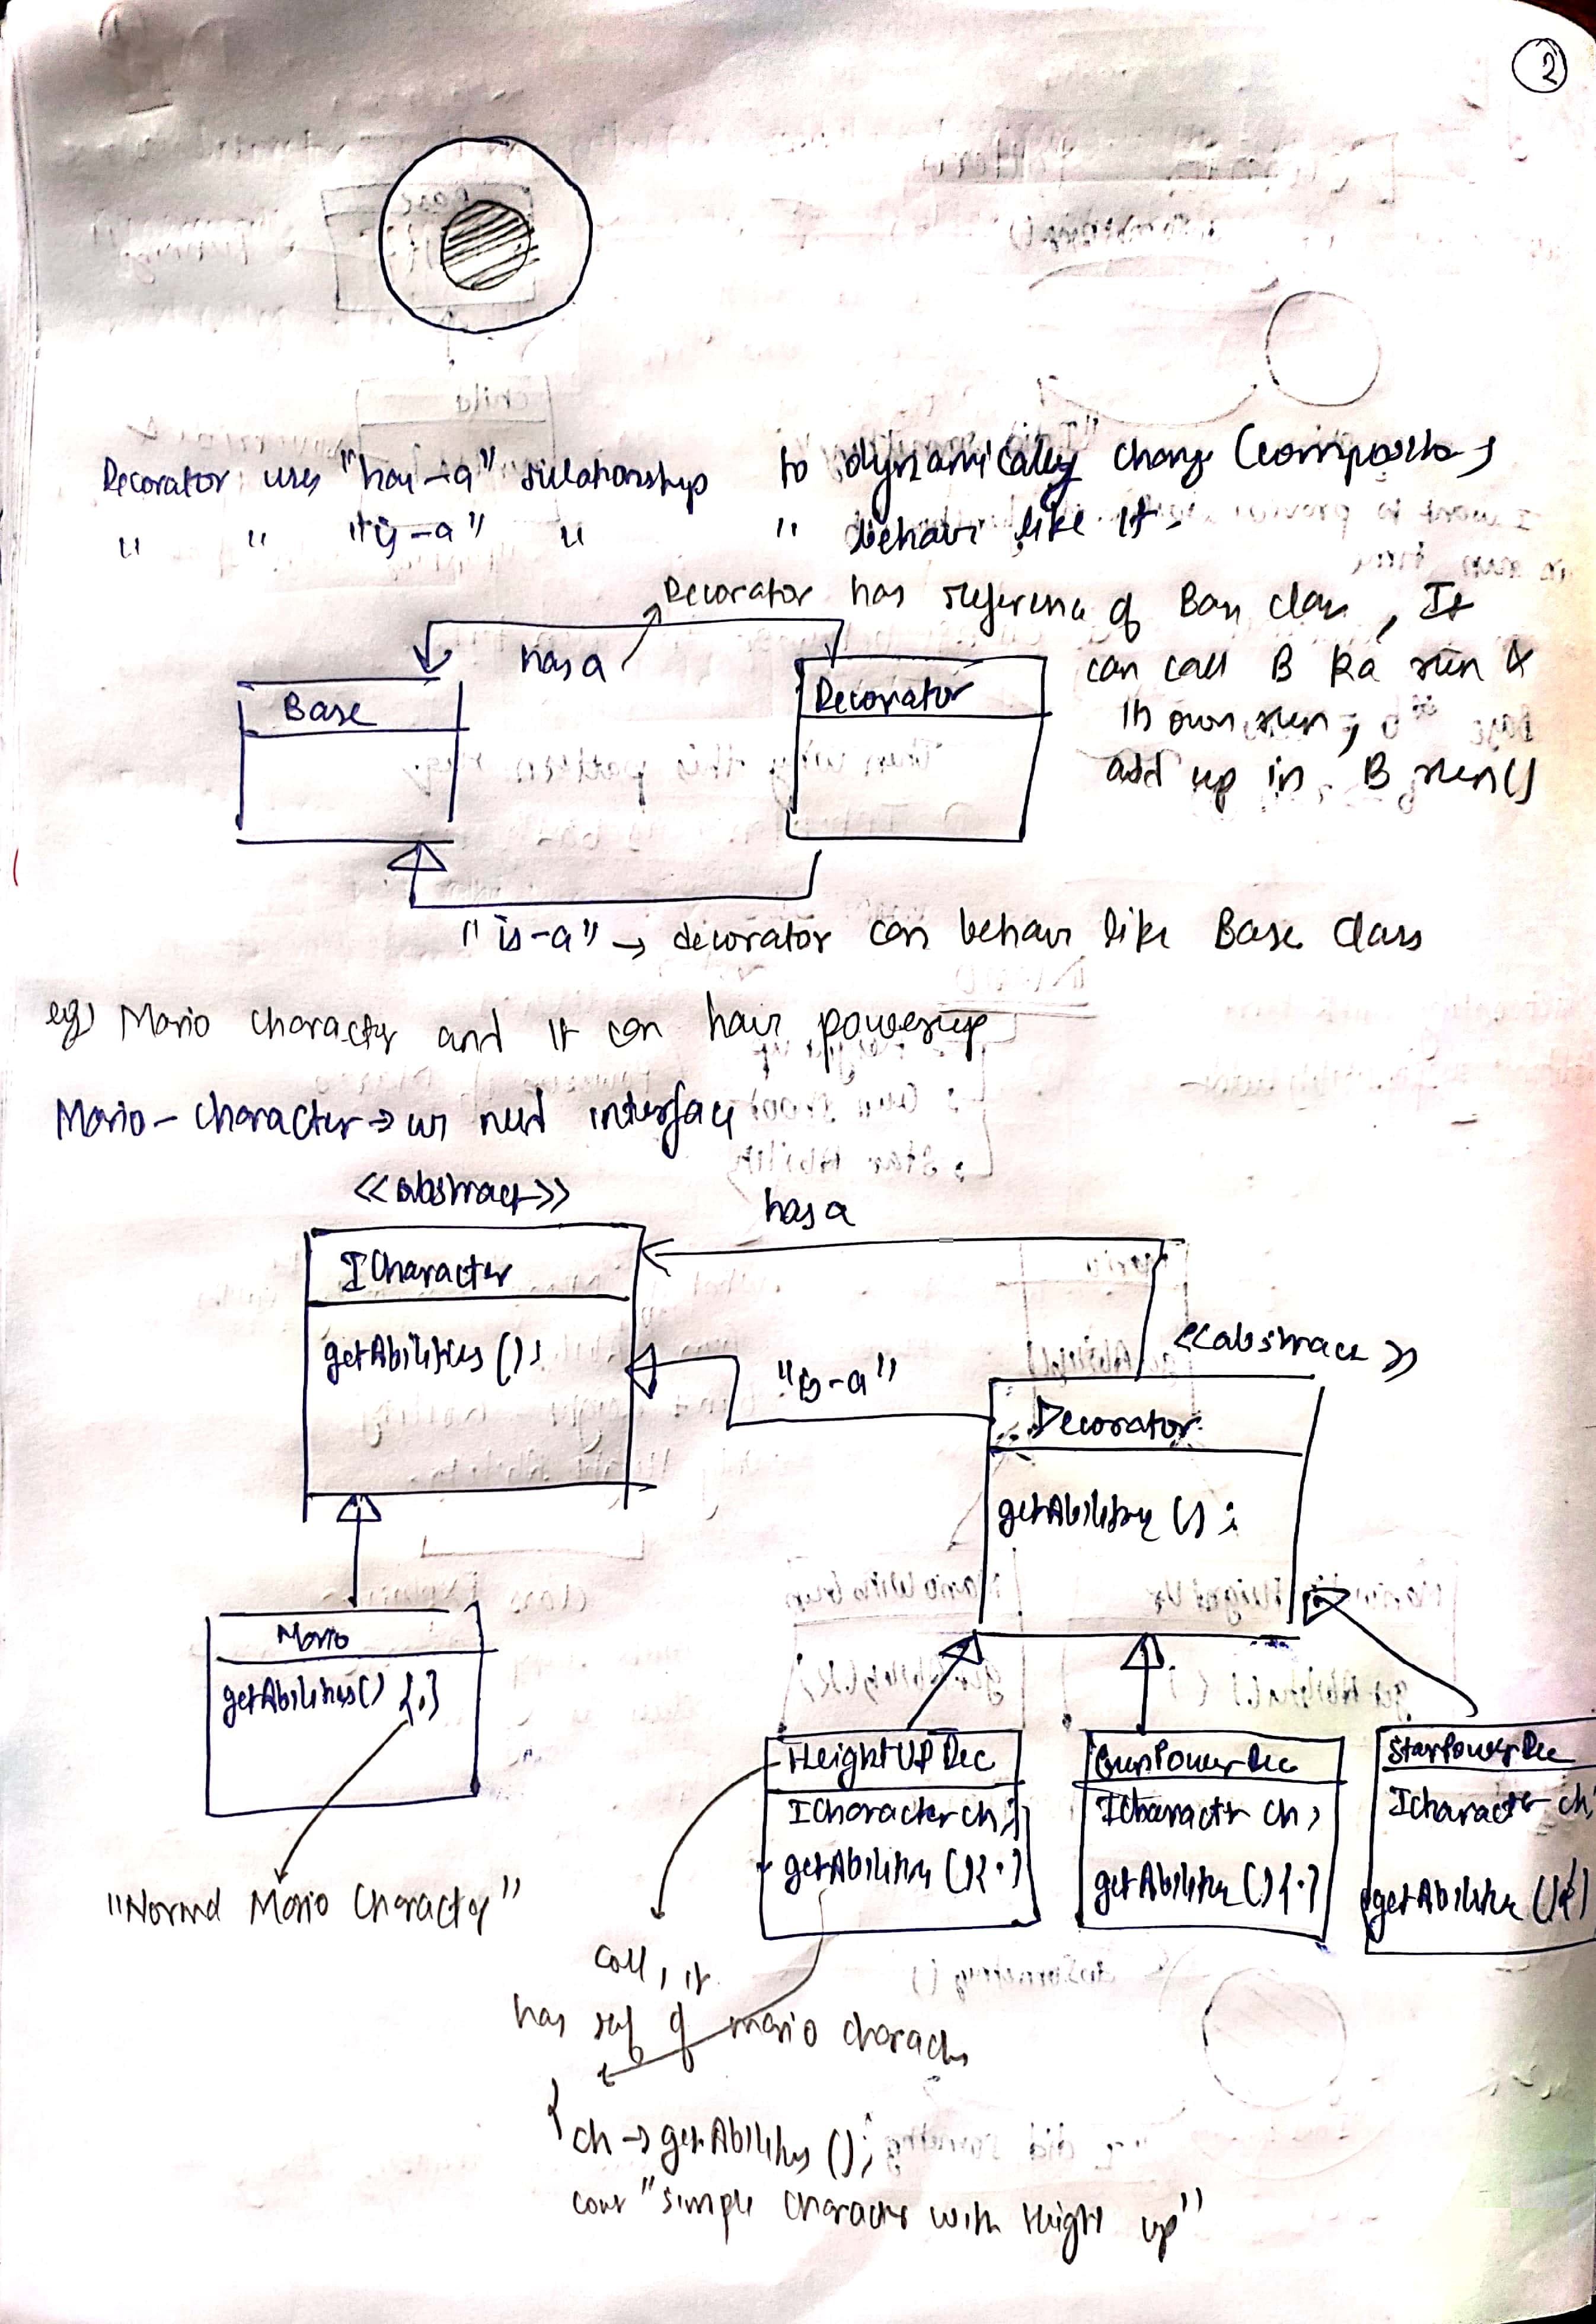 2
Decorator uses "has-a" relationship to dynamically change (composition)
" " "is-a" " " behave like it.
Decorator has reference of Base class, It
can call B ka run &
its own run,
add up in B run()
has a
Base
Decorator
"is-a" → decorator can behave like Base Class
eg) Mario Character and it can have powerup
Mario-Character → we need interface
<<abstract>>
has a
ICharacter
getAbilities();
"is-a"
<<abstract>>
Decorator
getAbilities();
Mario
getAbilities() {.}
HeightUP Dec
ICharacter ch;
getAbilities(){.}
GunPowerDec
ICharacter ch;
getAbilities(){.}
StarPowerDec
ICharacter ch;
getAbilities(){}
"Normal Mario Character"
call, it
has ref of mario character
{
ch → getAbilities();
cout "simple character with Height up"